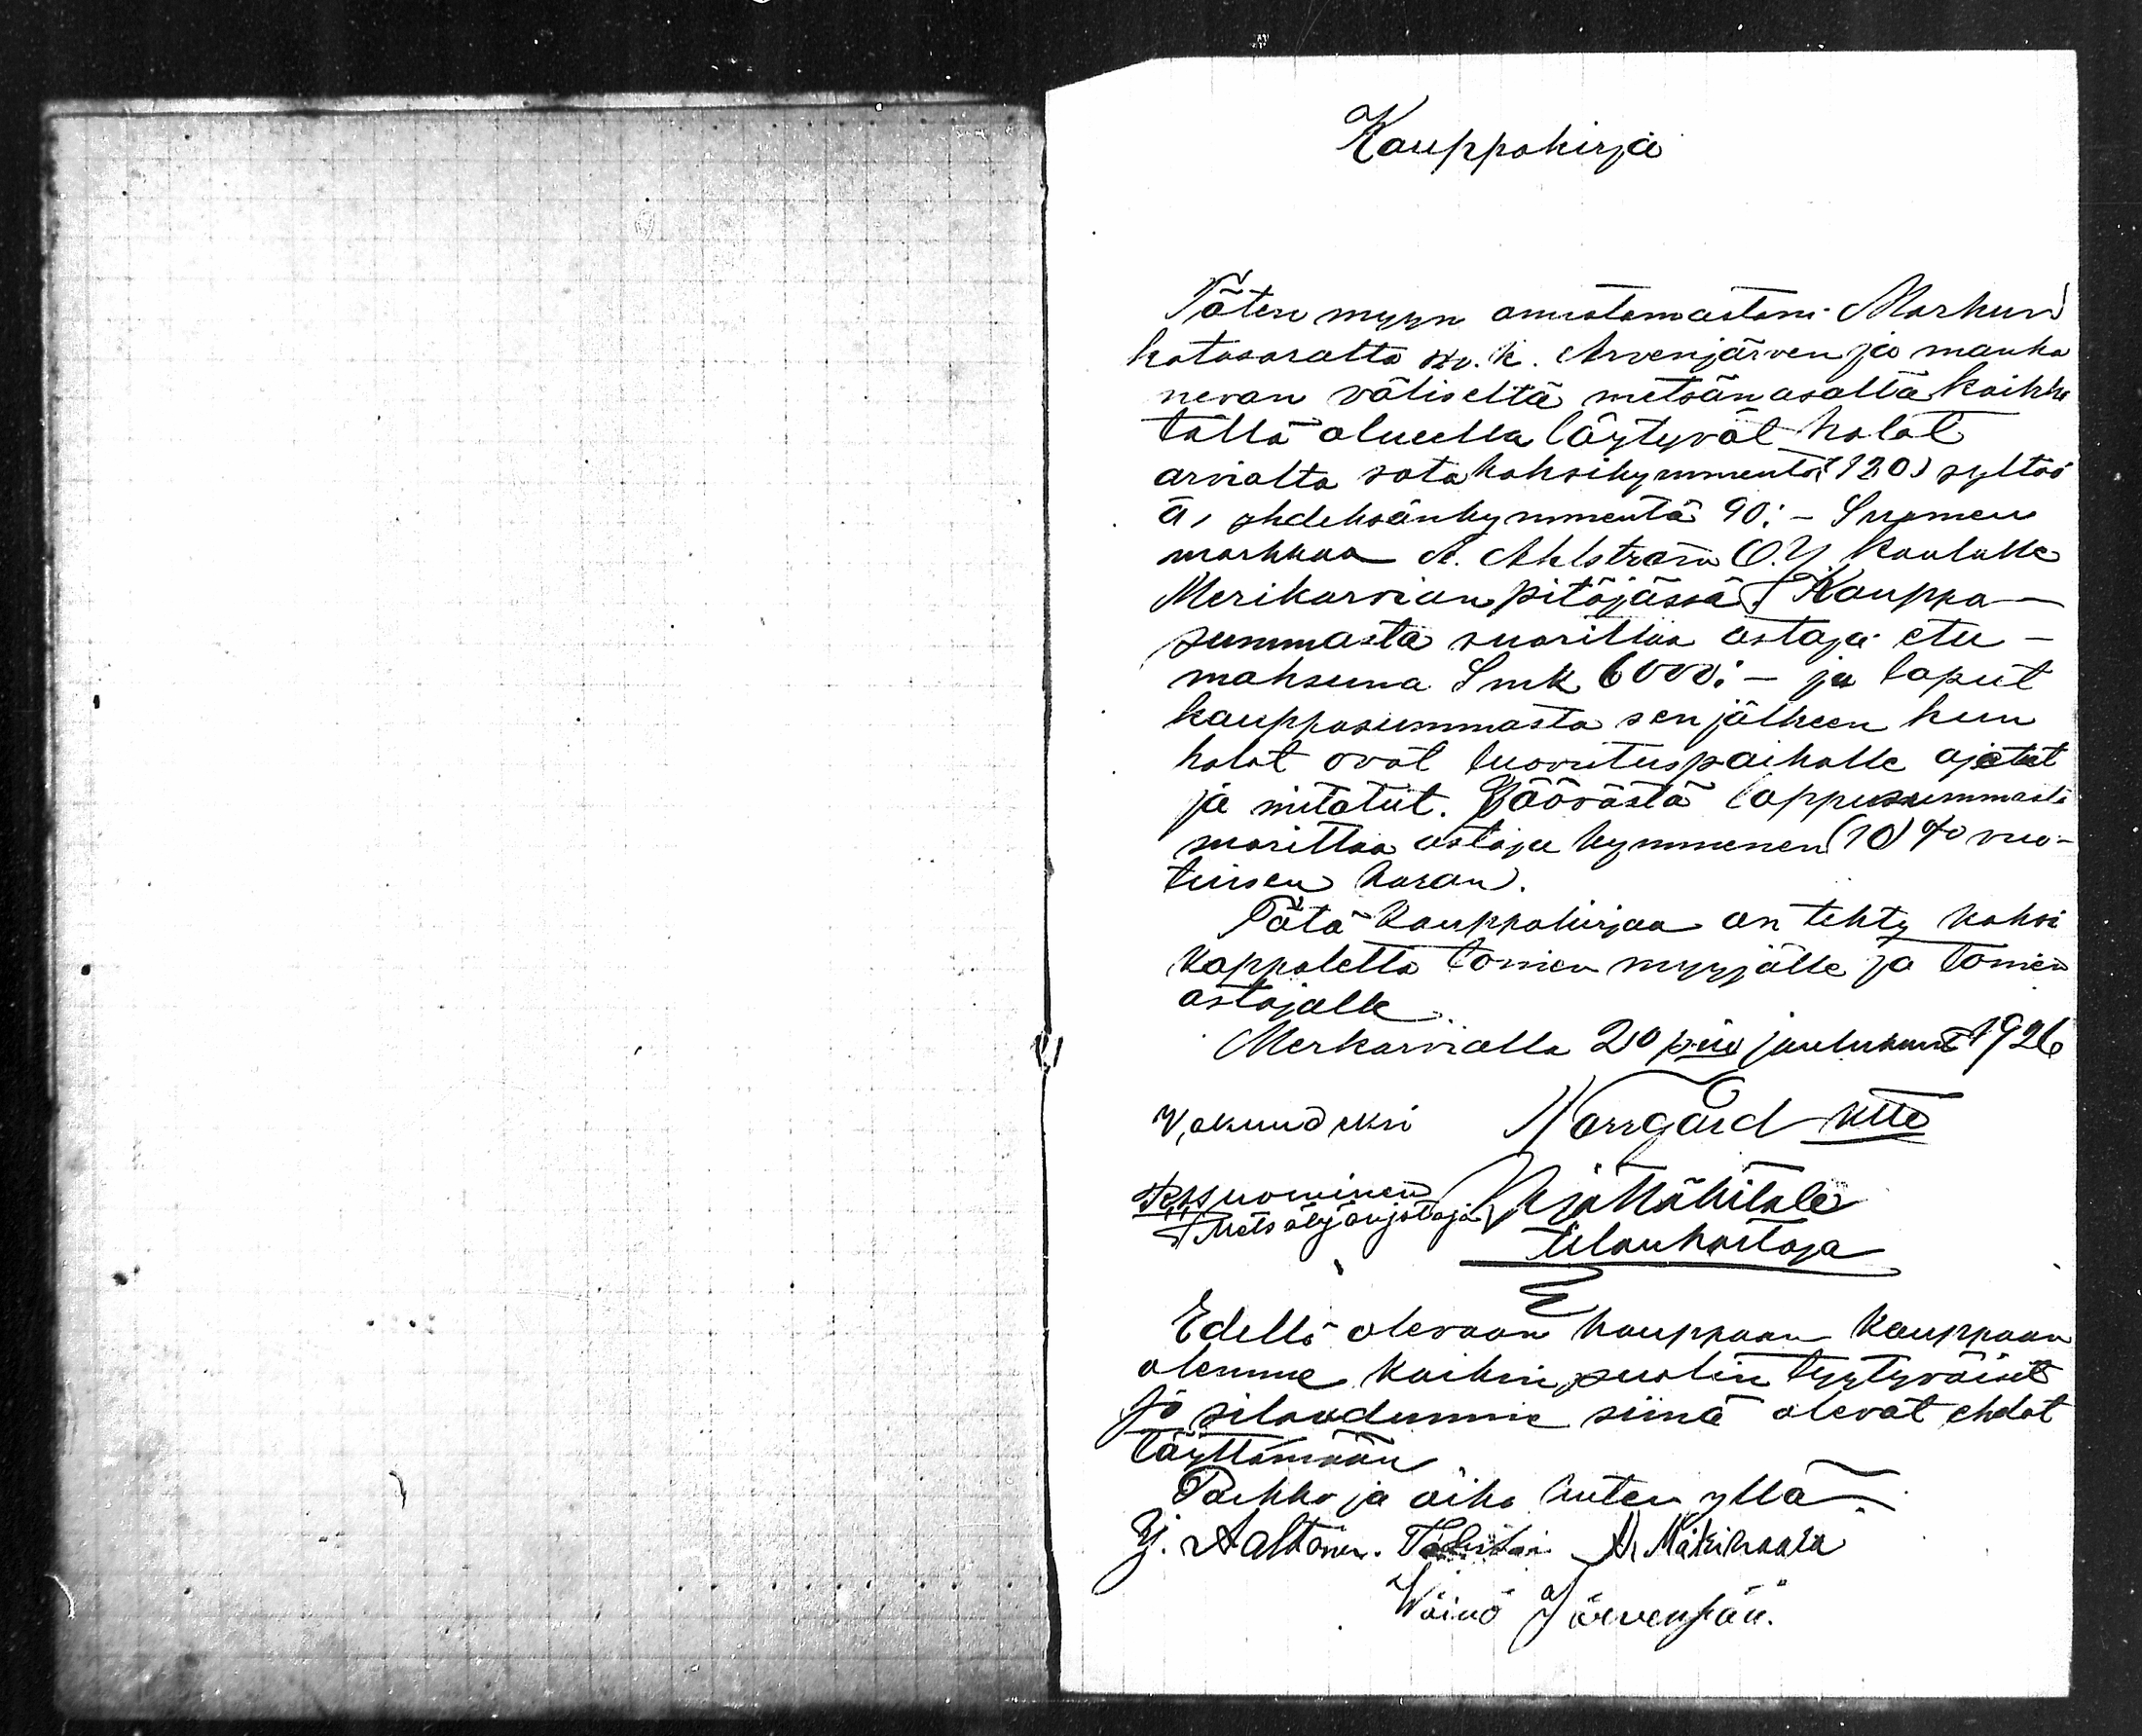 Kauppakirja
Täten myyn omistamastani Markun
katasaralta n.k. Arvenjärven ja mauka
nevan väliseltä metsän osalta kaikki
tällä alueella löytyvät halot
arviolta satakaksikymmentä (120) syltää
á, yhdeksänkymmentä 90:- Suomen
markkaa A. Ahlström O.Y. Kaululle
Merikarvian pitäjässä. Kauppa-
summasta suorittaa ostaja etu-
maksuna Smk 6000:- ja loput
kauppasummasta sen jälkeen kun
halot ovat luovutuspaikalle ajetut
ja mitatut. Jäävästä loppusummasta
suorittaa ostaja kymmenen (10) % vuo-
tuisen koron.
Tätä kauppakirjaa on tehty kaksi
kappaletta toinen myyjälle ja toinen
ostajalle.
Merkarvialla 20 p:nä joulukuut 1926
Vakuudeksi Norrgård
Suominen
Metsätyönjohtaja
tilanhoitaja
Edellä olevaan kauppaan kauppaan
olemme kaikin puolin tyytyväiset
ja sitoudumme siinä olevat ehdot
täyttämään
Paikka ja aika kuten yllä.
Yj. Aaltonen. A. Mäkiraala
Väinö Järvenpää.